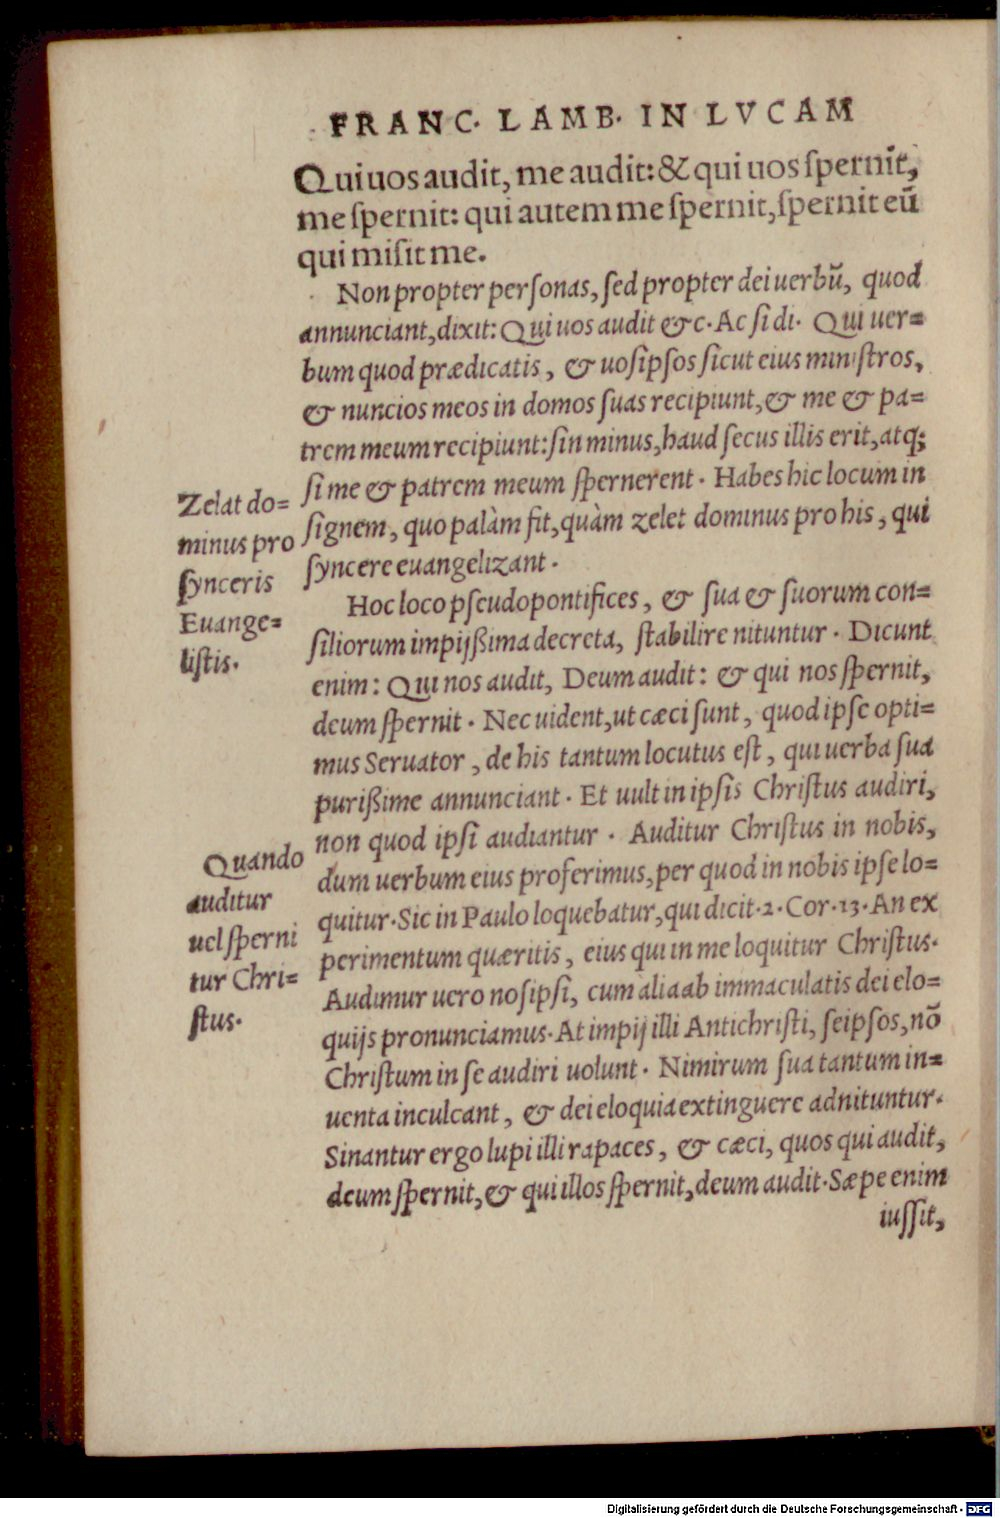 FRANC. LAMB. IN LVCAM
Qui uos audit, me audit: & qui uos ſpernit,
me ſpernit: qui autem me ſpernit, ſpernit eū
qui miſit me.
Non propter perſonas, ſed propter dei uerbũ, quod
annunciant, dixit: Qui uos audit &c. Ac ſi di. Qui uer=
bum quod prædicatis, & uoſipſos ſicut eius miniſtros,
& nuncios meos in domos ſuas recipiunt, & me & pa=
trem meum recipiunt: ſin minus, haud ſecus illis erit, atq;
ſi me & patrem meum ſpernerent. Habes hic locum in
ſignem, quo palàm fit, quàm zelet dominus pro his, qui
ſyncere euangelizant.
Zelat do=
minus pro
ſynceris
Euange=
liſtis.
Hoc loco pſeudopontifices, & ſua & ſuorum con=
ſiliorum impijßima decreta, ſtabilire nituntur. Dicunt
enim: Qui nos audit, Deum audit: & qui nos ſpernit,
deum ſpernit. Nec uident, ut cæci ſunt, quod ipſe opti=
mus Seruator, de his tantum locutus eſt, qui uerba ſua
purißime annunciant. Et uult in ipſis Chriſtus audiri,
non quod ipſi audiantur. Auditur Chriſtus in nobis,
dum uerbum eius proferimus, per quod in nobis ipſe lo=
quitur. Sic in Paulo loquebatur, qui dicit .2. Cor. 13. An ex
perimentum quæritis, eius qui in me loquitur Chriſtus.
Audimur uero noſipſi, cum alia ab immaculatis dei elo=
quijs pronunciamus. At impij illi Antichriſti, ſeipſos, nō
Chriſtum in ſe audiri uolunt. Nimirum ſua tantum in=
uenta inculcant, & dei eloquia extinguere adnituntur.
Sinantur ergo lupi illi rapaces, & cæci, quos qui audit,
deum ſpernit, & qui illos ſpernit, deum audit. Sæpe enim
iuſſit,
Quando
auditur
uel ſperni
tur Chri=
ſtus.
Digitalisierung gefördert durch die Deutsche Forschungsgemeinschaft - DFG